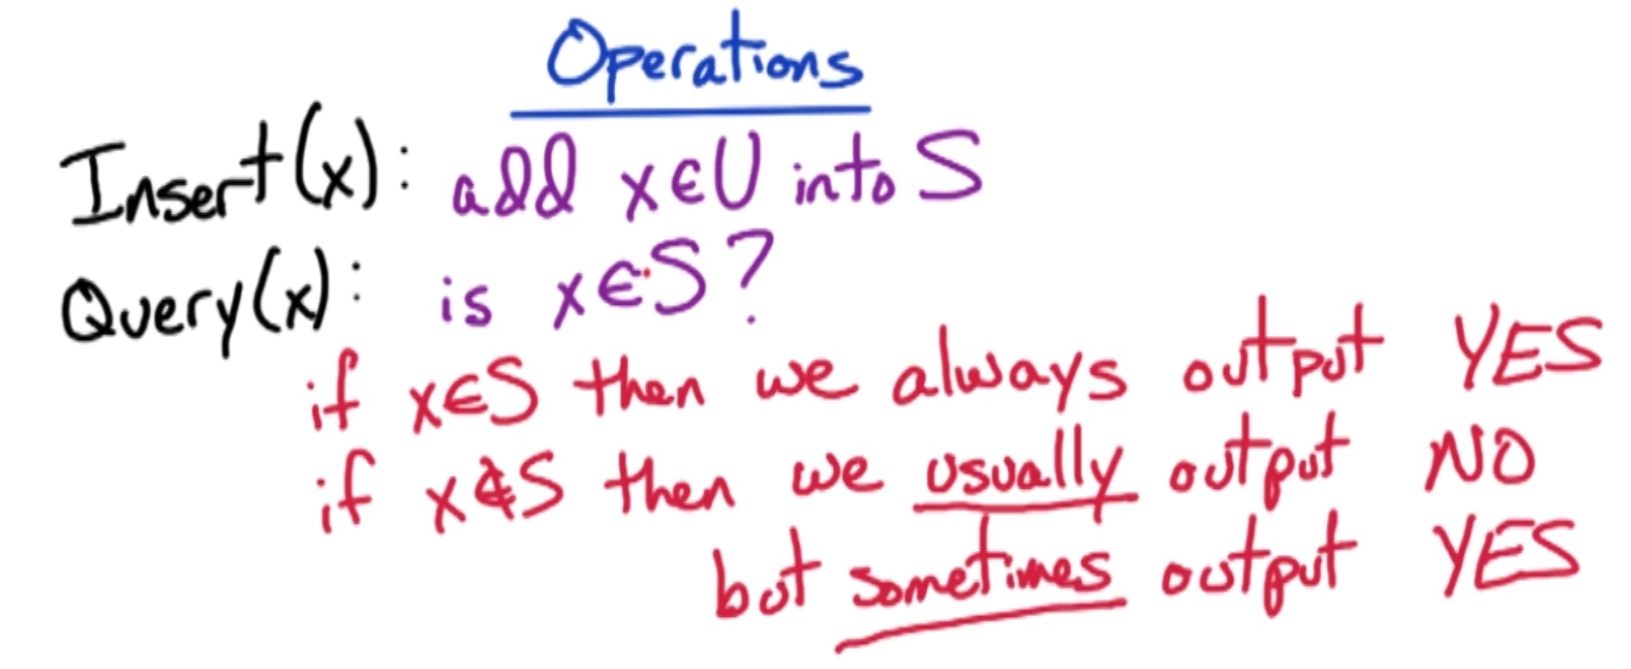 Operations
Insert(x): add x∈U into S
Query(x): is x∈S?
if x∈S then we always output YES
if x∉S then we usually output NO
but sometimes output YES